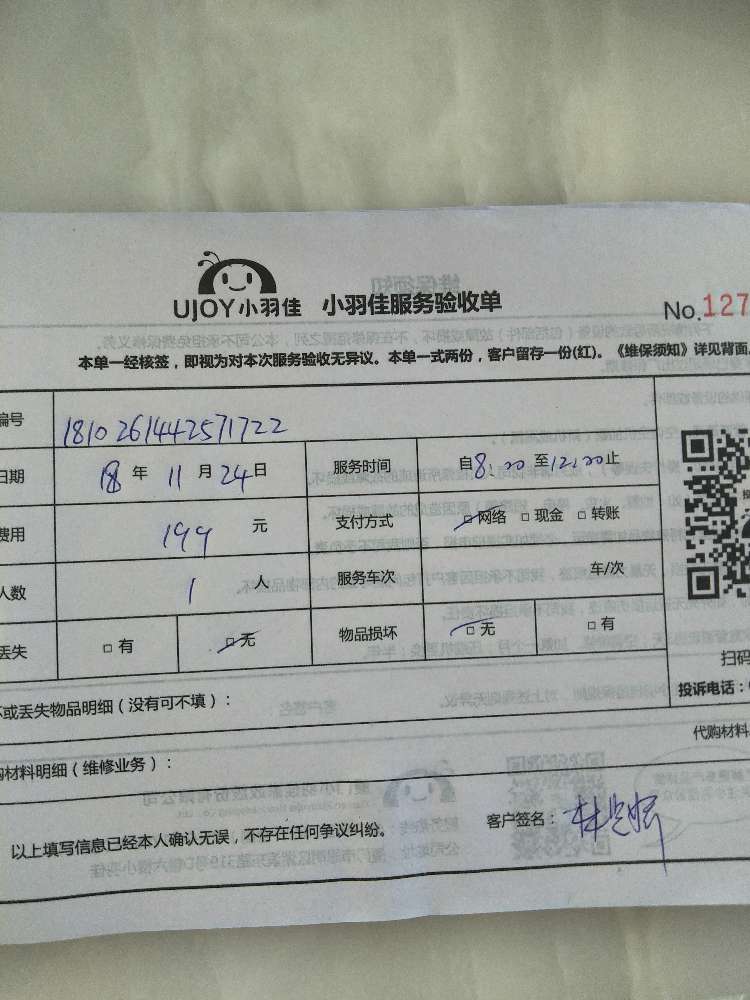 UJOY小羽佳 小羽佳服务验收单
No.127
本单一经核签，即视为对本次服务验收无异议。本单一式两份，客户留存一份(红)。《维保须知》详见背面。
编号 1810261442571722
日期 18 年 11 月 24 日 服务时间 自8:00至12:00止
费用 199 元 支付方式 □网络 □现金 □转账
人数 1 人 服务车次 车/次
丢失 □有 □无 物品损坏 □无 □有
扫码
投诉电话：
坏或丢失物品明细（没有可不填）：
代购材料
购材料明细（维修业务）：
以上填写信息已经本人确认无误，不存在任何争议纠纷。
客户签名：林